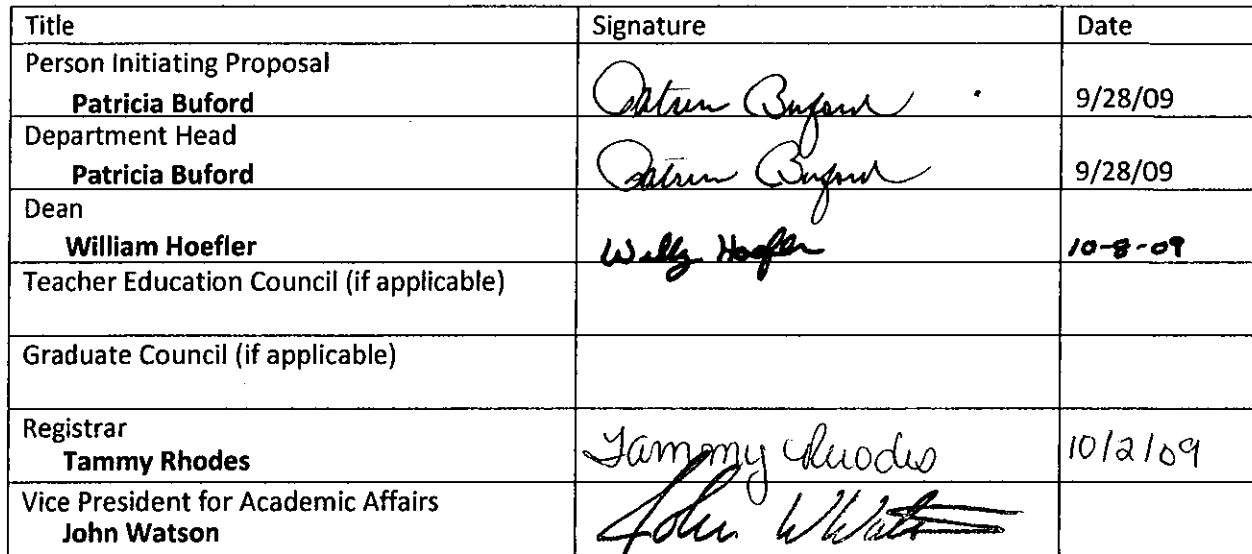 Title Signature Date
Person Initiating Proposal
Patricia Buford Patricia Buford 9/28/09
Department Head
Patricia Buford Patricia Buford 9/28/09
Dean
William Hoefler Willy Hoefler 10-8-09
Teacher Education Council (if applicable)
Graduate Council (if applicable)
Registrar
Tammy Rhodes Tammy Rhodes 10/2/09
Vice President for Academic Affairs
John Watson John W Watson